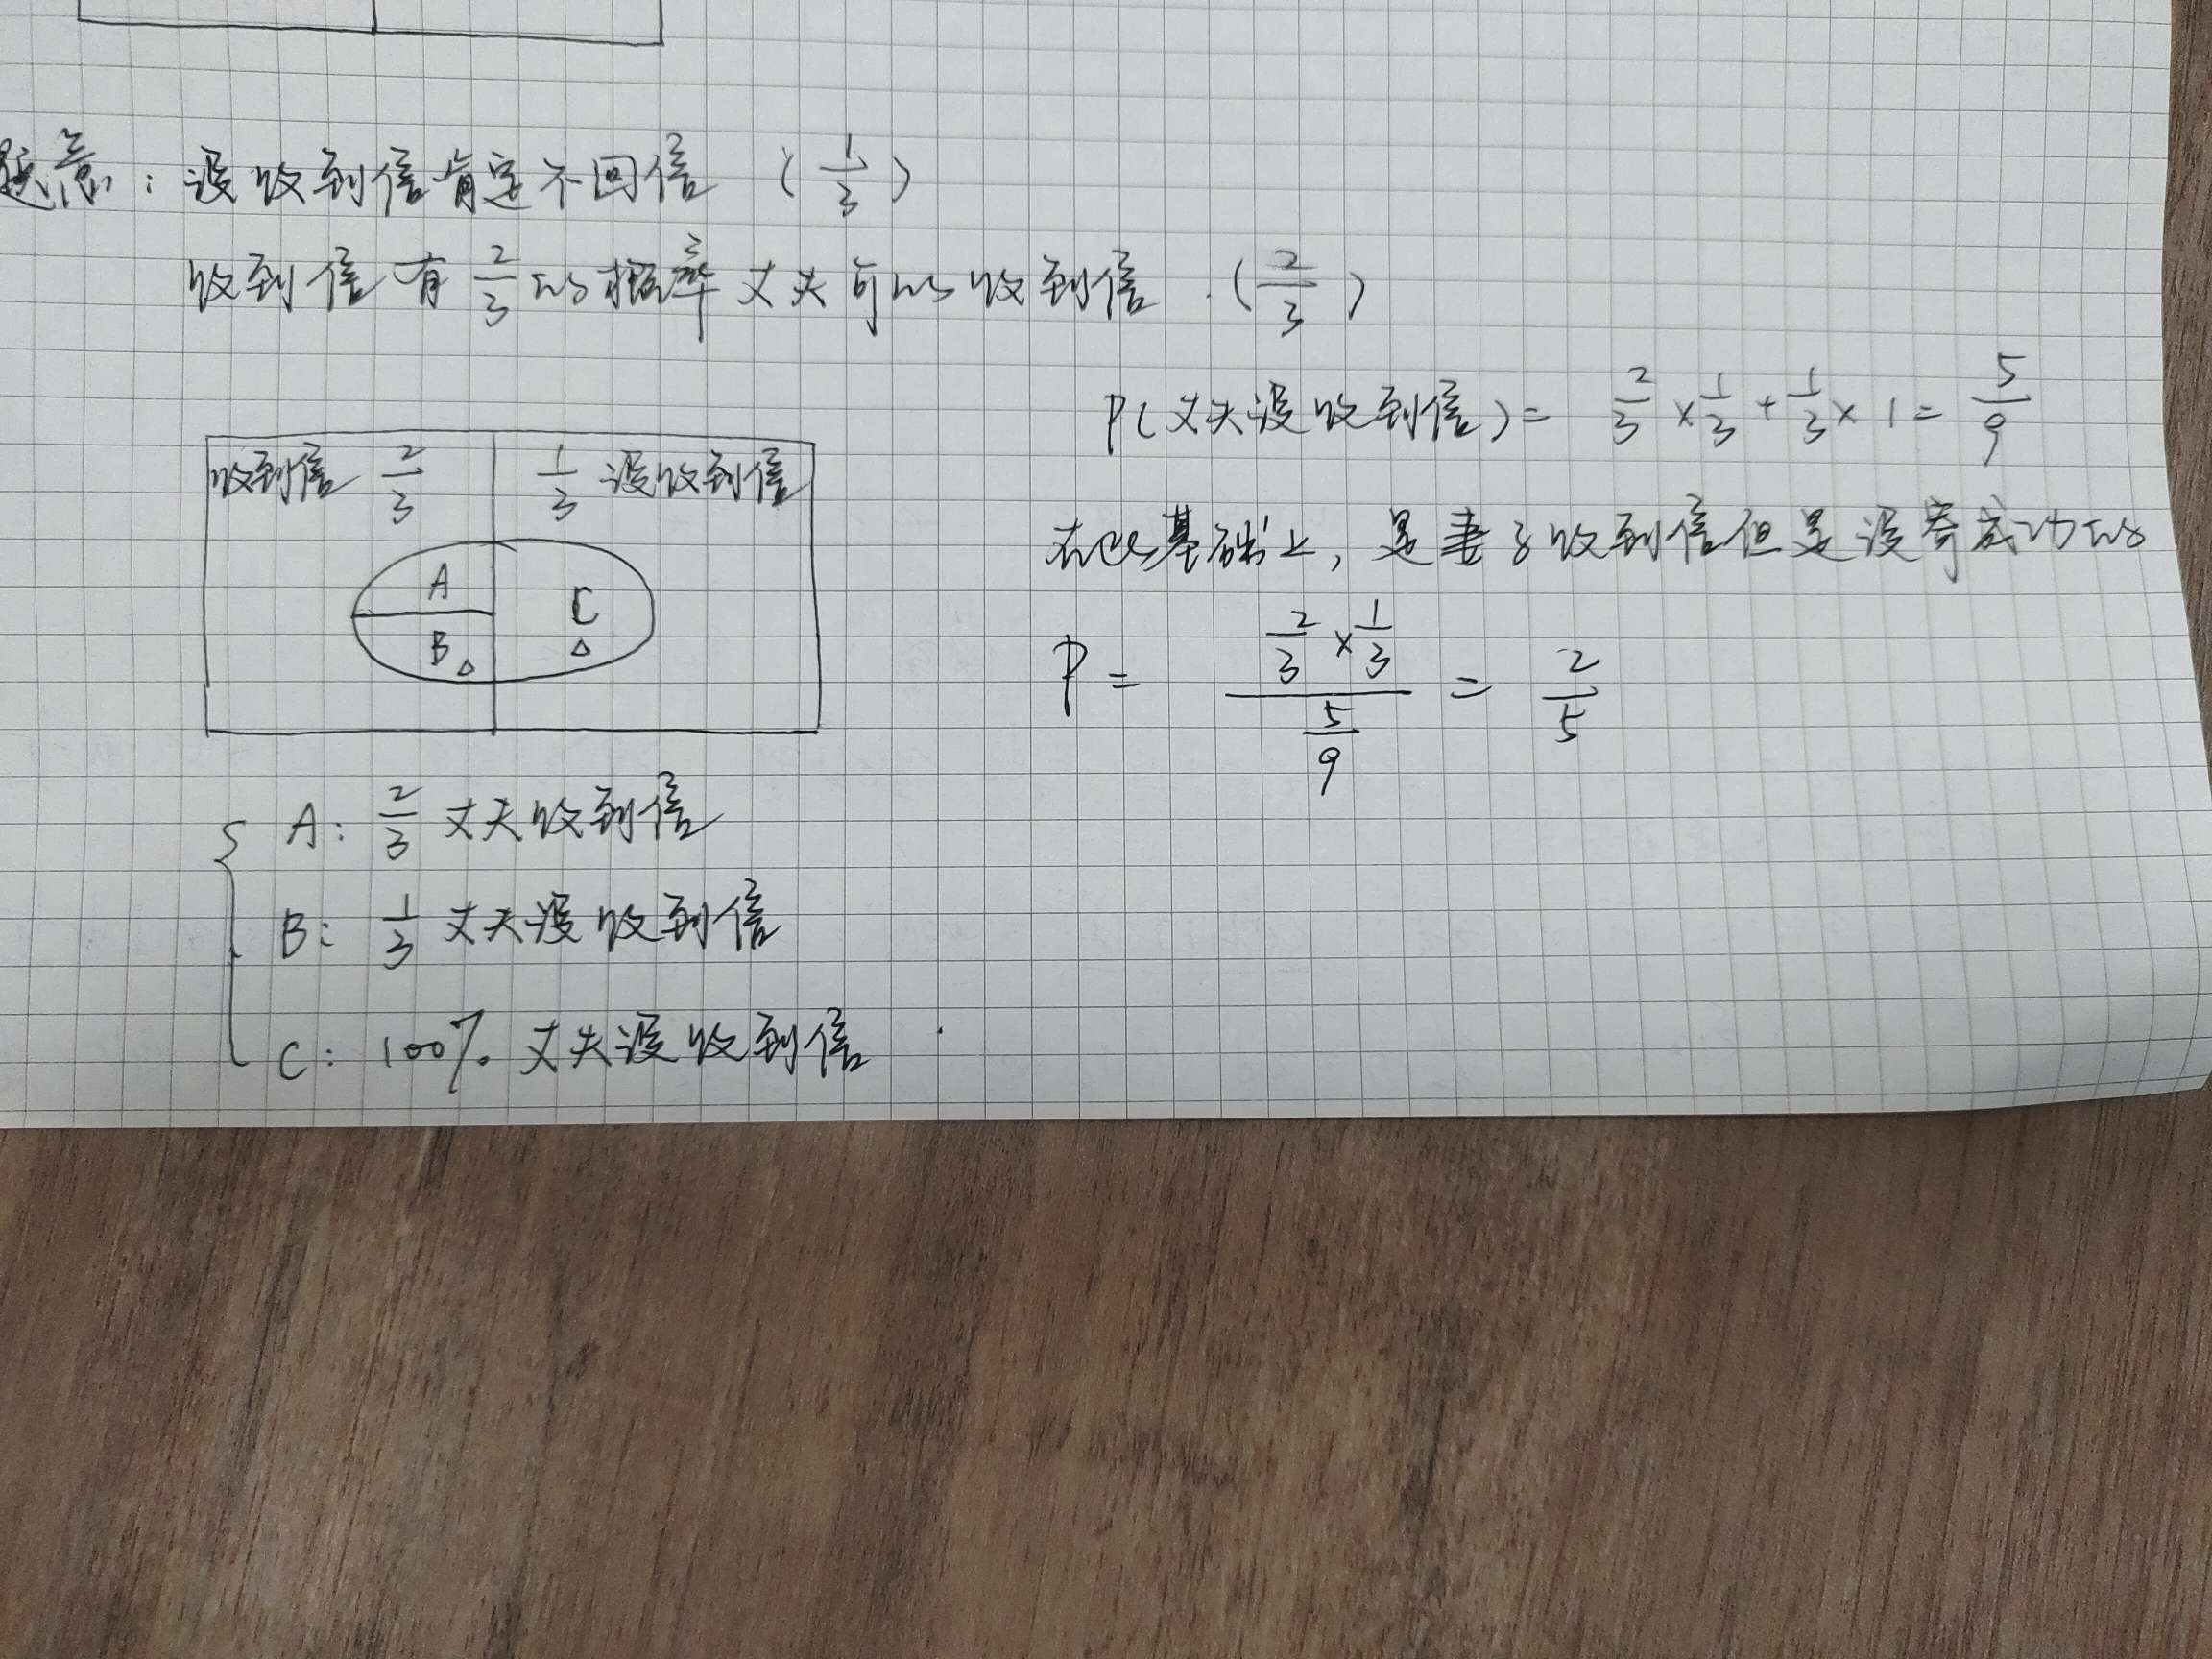 题意：没收到信肯定不回信 （1/3）
收到信有 2/3 的概率丈夫可以收到信．（2/3）
P（丈夫没收到信）= 2/3 × 1/3 + 1/3 × 1 = 5/9
收到信 2/3
1/3 没收到信
在此基础上，是妻子收到信但是没寄成功的
A
B △
C △
P = (2/3 × 1/3) / (5/9) = 2/5
A: 2/3 丈夫收到信
B: 1/3 丈夫没收到信
C: 100% 丈夫没收到信